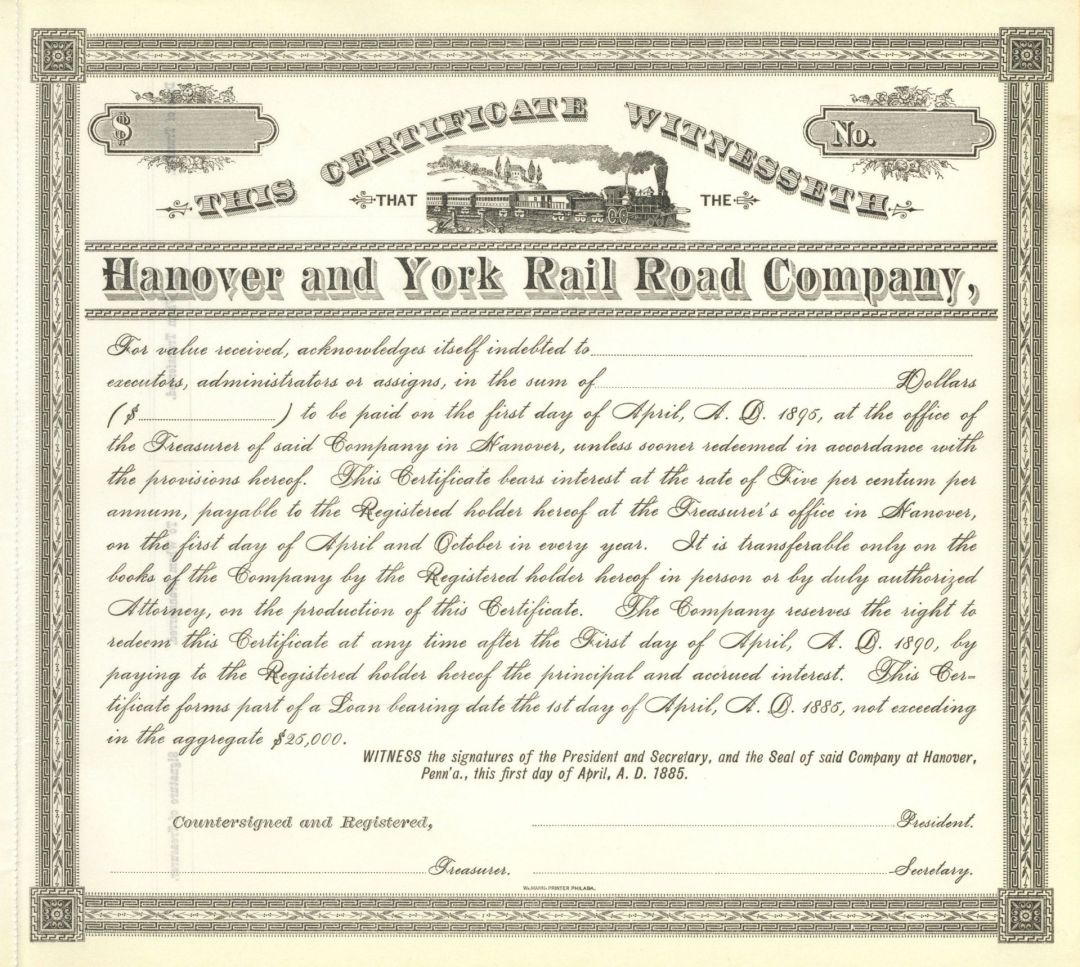 $
No.
THIS CERTIFICATE WITNESSETH
THAT THE
Hanover and York Rail Road Company,
For value received, acknowledges itself indebted to
executors, administrators or assigns, in the sum of Dollars
($ ) to be paid on the first day of April, A. D. 1895, at the office of
the Treasurer of said Company in Hanover, unless sooner redeemed in accordance with
the provisions hereof. This Certificate bears interest at the rate of Five per centum per
annum, payable to the Registered holder hereof at the Treasurer's office in Hanover,
on the first day of April and October in every year. It is transferable only on the
books of the Company by the Registered holder hereof in person or by duly authorized
Attorney, on the production of this Certificate. The Company reserves the right to
redeem this Certificate at any time after the First day of April, A. D. 1890, by
paying to the Registered holder hereof the principal and accrued interest. This Cer-
tificate forms part of a Loan bearing date the 1st day of April, A. D. 1885, not exceeding
in the aggregate $25,000.
WITNESS the signatures of the President and Secretary, and the Seal of said Company at Hanover,
Penn'a., this first day of April, A. D. 1885.
Countersigned and Registered,
President.
Treasurer.
Secretary.
WM. MANN, PRINTER PHILADA.